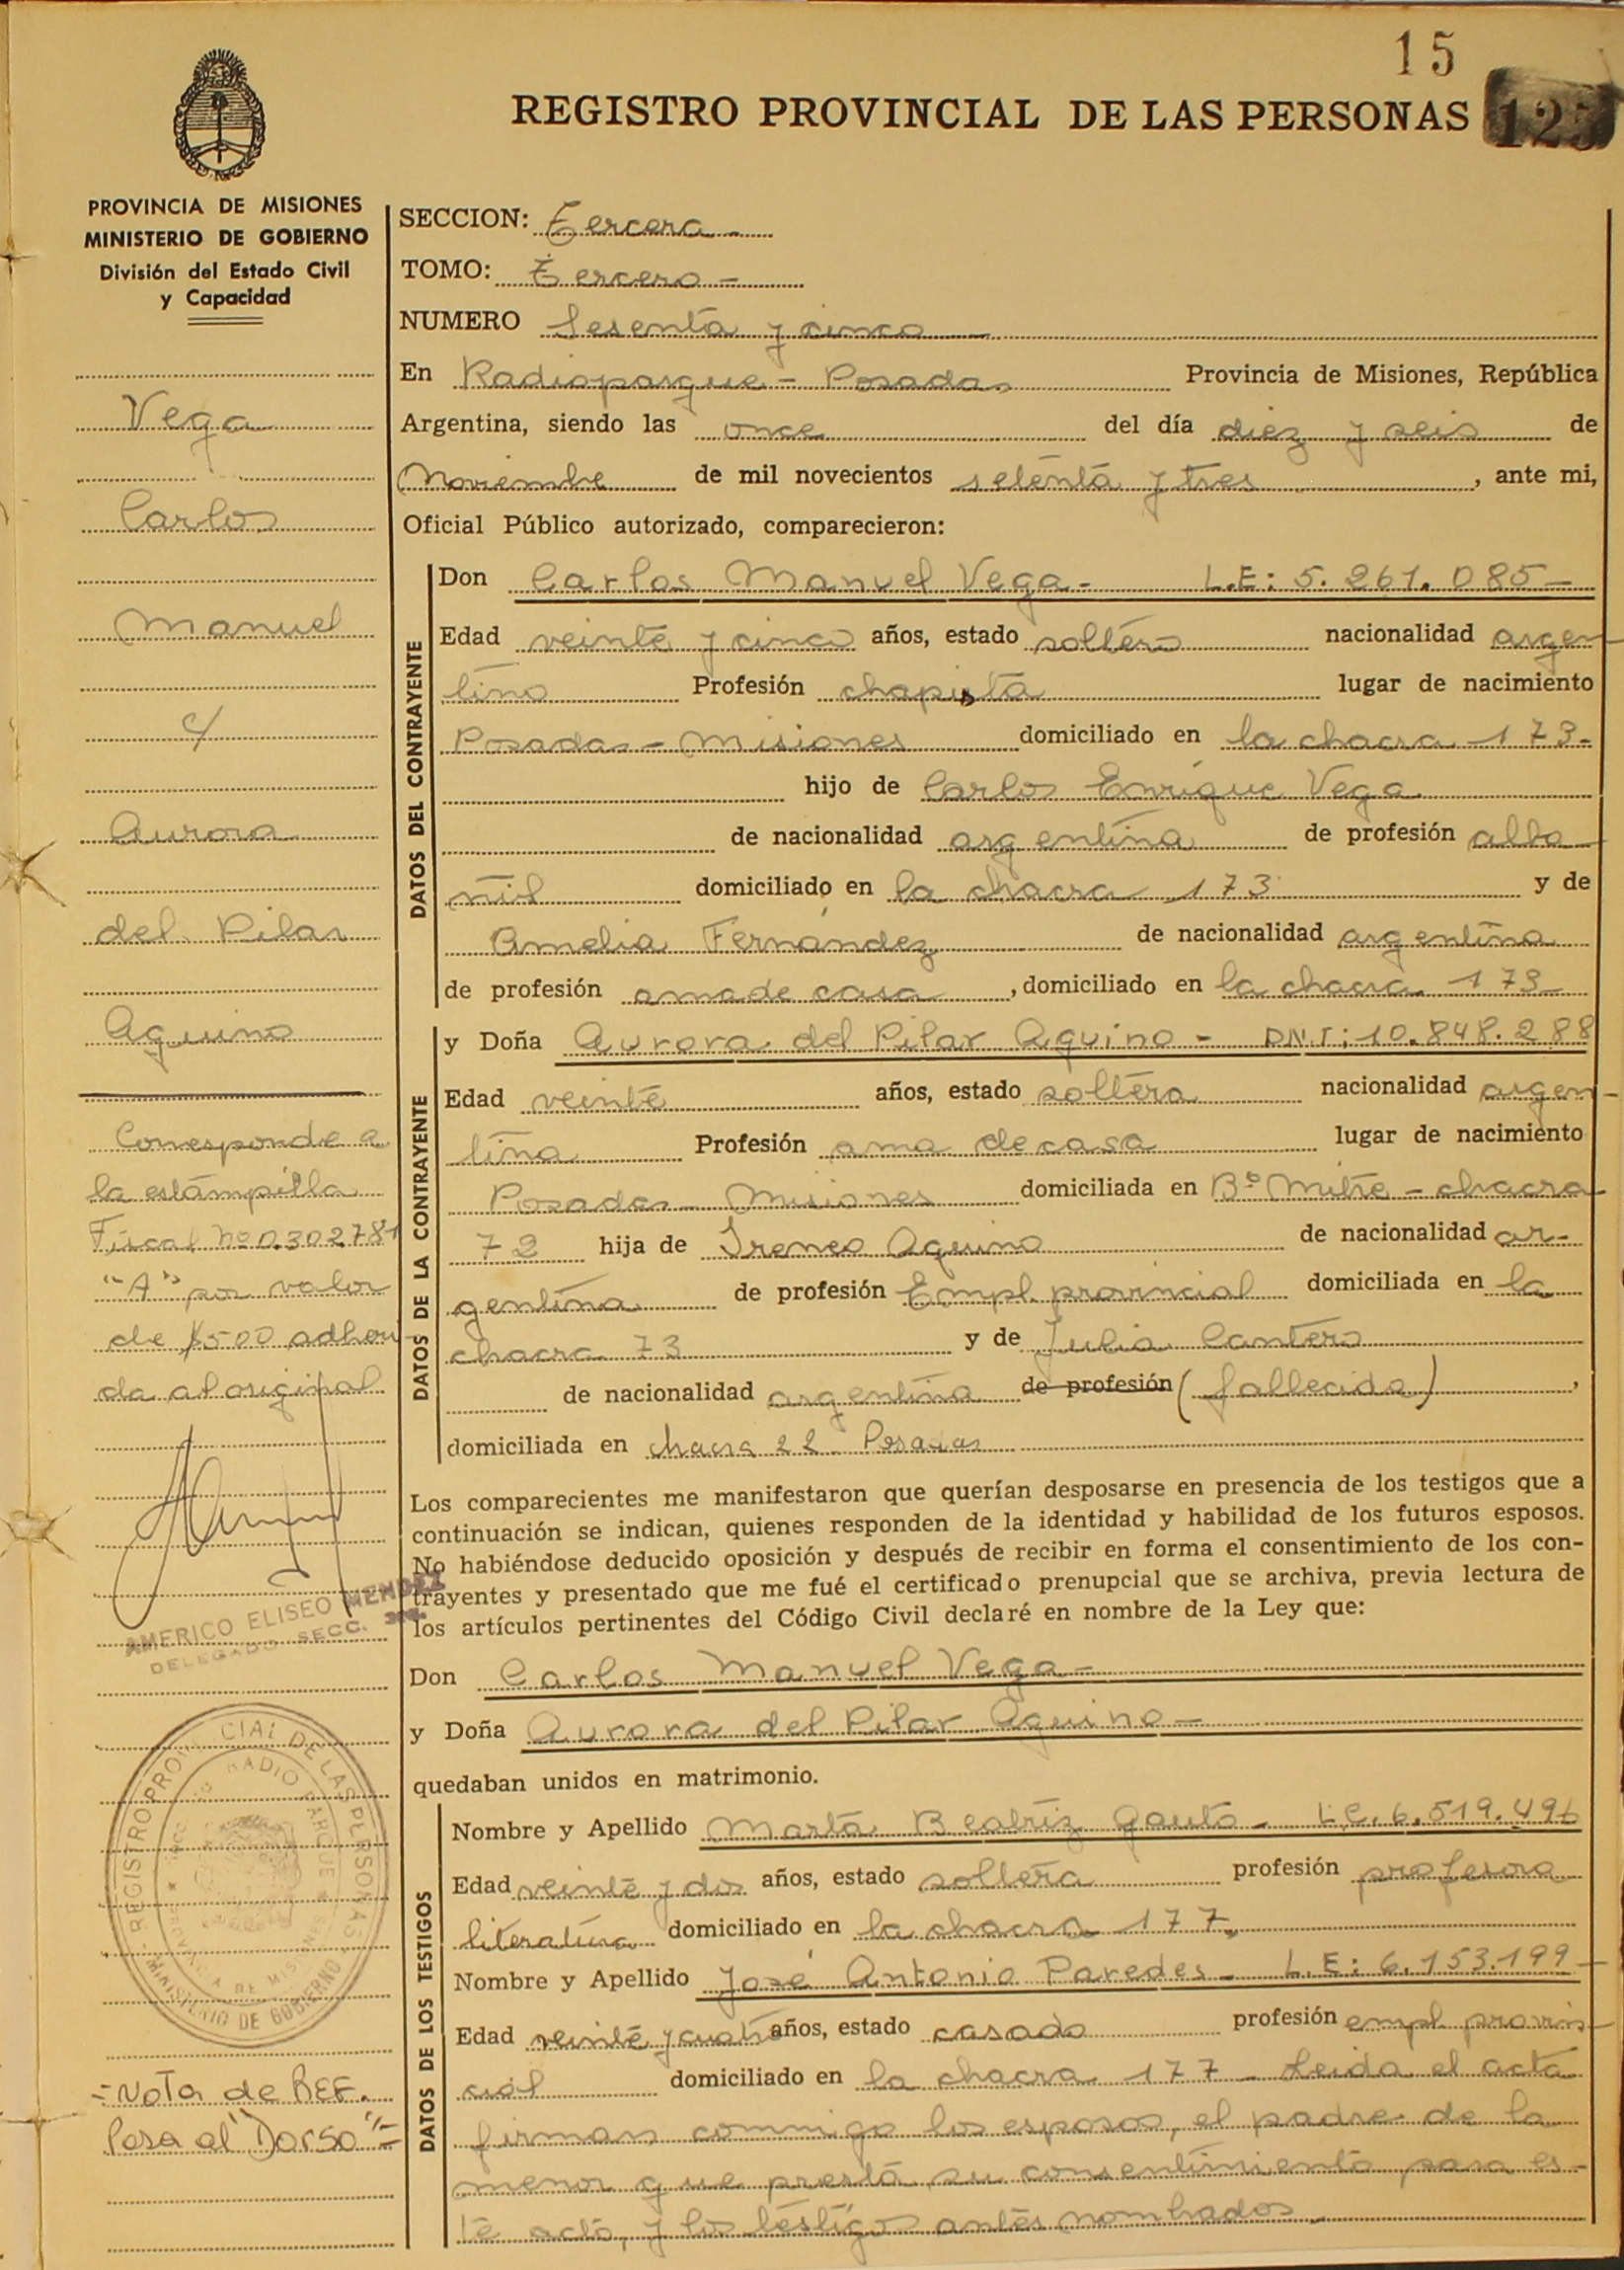 15
REGISTRO PROVINCIAL DE LAS PERSONAS
125
PROVINCIA DE MISIONES
MINISTERIO DE GOBIERNO
División del Estado Civil
y Capacidad
Vega
Carlos
Manuel
c/
Aurora
del Pilar
Aquino
Corresponde a
la estampilla
Fiscal Nº 0.302781
"A" por valor
de $500 adheri
da al original
AMERICO ELISEO
DELEGADO SECC.
REGISTRO PROVINCIAL DE LAS PERSONAS
MINISTERIO DE GOBIERNO
RADIO PARQUE
PROVINCIA DE MISIONES
=Nota de REF.
Pasa al "Dorso"=
SECCION: Tercera -
TOMO: Tercero -
NUMERO Sesenta y cinco -
En Radioparque - Posadas Provincia de Misiones, República
Argentina, siendo las once del día diez y seis de
Noviembre de mil novecientos setenta y tres, ante mi,
Oficial Público autorizado, comparecieron:
DATOS DEL CONTRAYENTE
Don Carlos Manuel Vega - L.E: 5.261.085 -
Edad veinte y cinco años, estado soltero nacionalidad argen
tino Profesión chapista lugar de nacimiento
Posadas - Misiones domiciliado en la chacra 173.
hijo de Carlos Enrique Vega
de nacionalidad argentina de profesión alba
ñil domiciliado en la chacra 173 y de
Amelia Fernández de nacionalidad argentina
de profesión ama de casa, domiciliado en la chacra 173
DATOS DE LA CONTRAYENTE
y Doña Aurora del Pilar Aquino - DN.I: 10.848.288
Edad veinte años, estado soltera nacionalidad argen-
tina Profesión ama de casa lugar de nacimiento
Posadas - Misiones domiciliada en Bº Mitre - chacra
72 hija de Ireneo Aquino de nacionalidad ar-
gentina de profesión Empl. provincial domiciliada en la
chacra 73 y de Julia Cantero
de nacionalidad argentina de profesión (fallecida),
domiciliada en chacra 22 Posadas
Los comparecientes me manifestaron que querían desposarse en presencia de los testigos que a
continuación se indican, quienes responden de la identidad y habilidad de los futuros esposos.
No habiéndose deducido oposición y después de recibir en forma el consentimiento de los con-
trayentes y presentado que me fué el certificado prenupcial que se archiva, previa lectura de
los artículos pertinentes del Código Civil declaré en nombre de la Ley que:
Don Carlos Manuel Vega -
y Doña Aurora del Pilar Aquino -
quedaban unidos en matrimonio.
DATOS DE LOS TESTIGOS
Nombre y Apellido Marta Beatriz Gauto - L.C. 6.519.496
Edad veinte y dos años, estado soltera profesión profesora
literatura domiciliado en la chacra 177.
Nombre y Apellido José Antonio Paredes - L.E: 6.153.199 -
Edad veinte y cuatro años, estado casado profesión empl. provin-
cial domiciliado en la chacra 177 - Leida el acta
firman conmigo los esposos, el padre de la
menor que presta su consentimiento para es-
te acto, y los testigos antes nombrados.